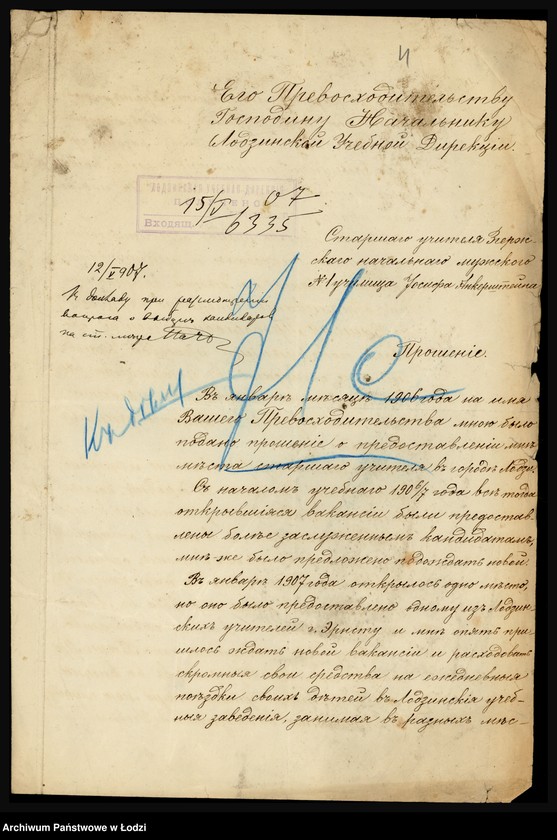 4
Его Превосходительству
Господину Начальнику
Лодзинской Учебной Дирекціи.
15/V 07
6335
Входящ.
Старшаго учителя Згерж-
скаго начальнаго мужского
№ 1 училища Іосифа Инкерштейна
12/V 907.
Къ докладу при
вопроса о кандидатовъ
на
Прошеніе.
Къ докладу
Въ январѣ мѣсяцѣ 1906 года на имя
Вашего Превосходительства мною было
подано прошеніе о предоставленіи мнѣ
мѣста старшаго учителя въ городѣ Лодзи.
Съ началомъ учебнаго 1906/7 года всѣ тогда
открывшіяся вакансіи были предостав-
лены болѣе заслуженнымъ кандидатамъ,
мнѣ-же было предложено подождать новой.
Въ январѣ 1907 года открылось одно мѣсто,
но оно было предоставлено одному изъ Лодзин-
скихъ учителей г. Эрнсту и мнѣ опять при-
шлось ждать новой вакансіи и расходовать
скромныя свои средства на ежедневныя
поѣздки своихъ дѣтей въ Лодзинскія учеб-
ныя заведенія, занимая въ разныхъ мѣс-
Archiwum Państwowe w Łodzi